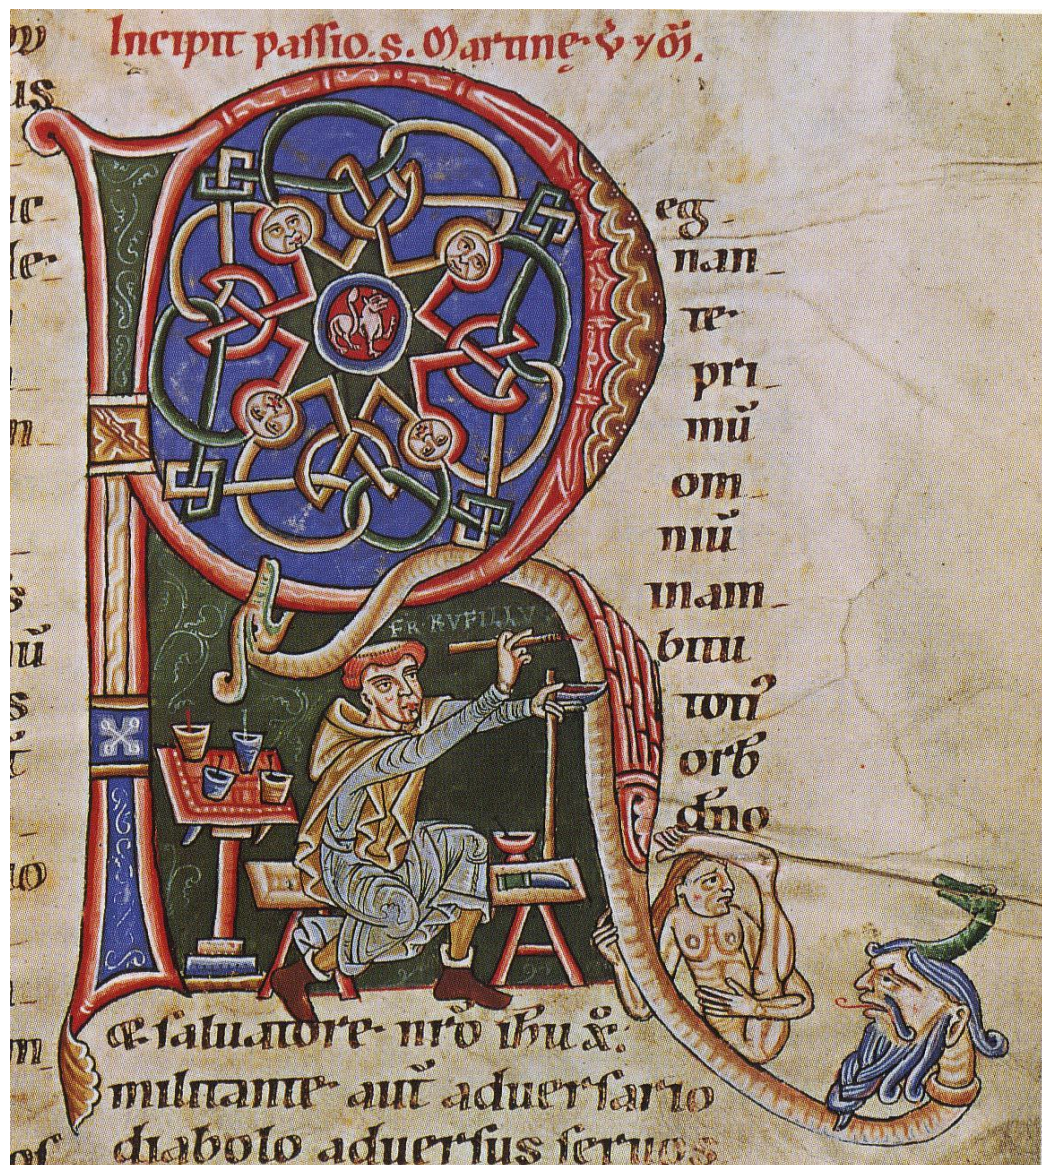 Incipit passio. s. Martine.
R
eg-
nan-
te·
pri-
mū
om-
niū
inam-
bitu
FR·RVFILLVS
toti᾽
orb
dn̄o
& saluatore· nr̄o ihu x̄·
militante· aut̄ aduersario
diabolo aduersus seruos